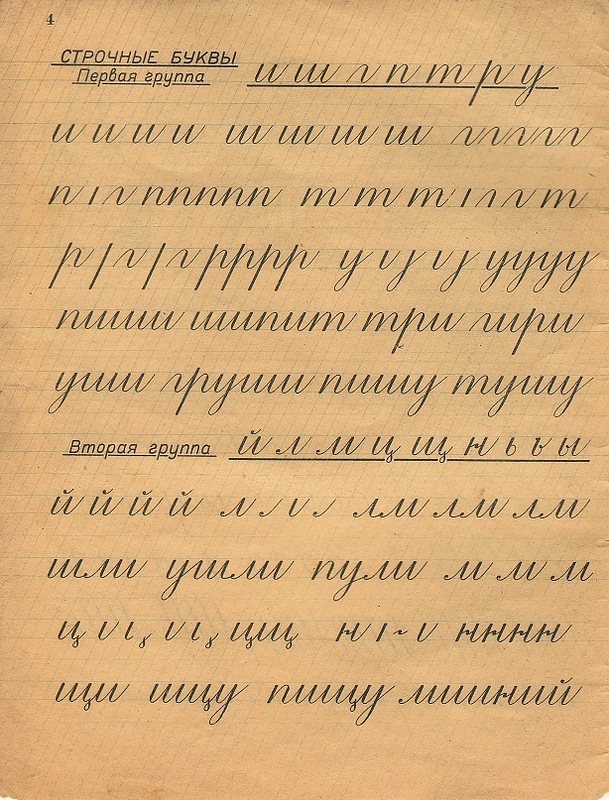 4
СТРОЧНЫЕ БУКВЫ
Первая группа и ш г п т р у
и и и и ш ш ш ш г г г г г
п г п п п п п т т т г г т
р г г р р р р у у у у у
пиши шипит три гири
уши груши пишу тушу
Вторая группа й л м ц щ н ь ъ ы
й й й й л лм лм лм
шли ушли пули м м м
ц цщ н нннн
щи ищу пищу лишний